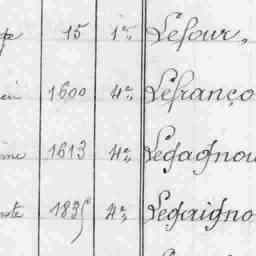 15 1re Lefour,
1600 4e Lefranço
1613 4e Legagnou
1835 4e Legaigno